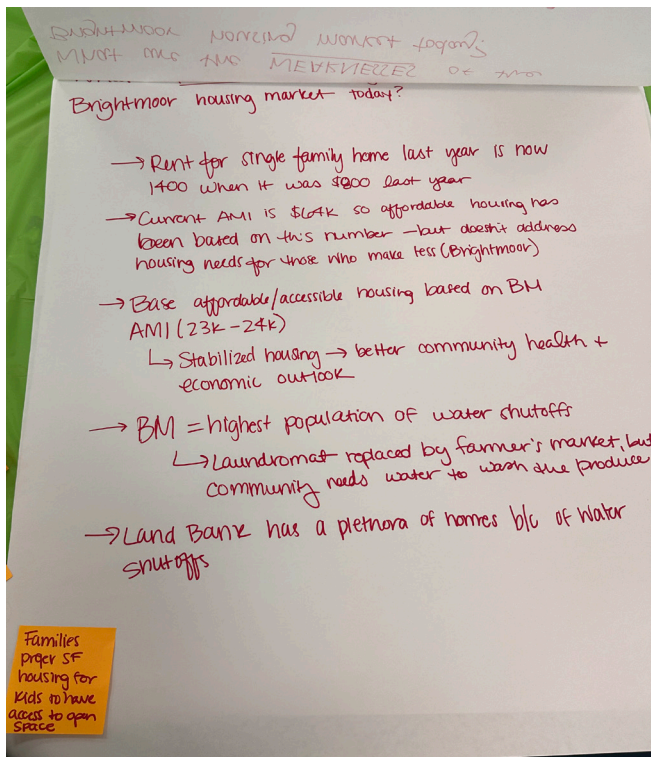 Brightmoor housing market today?
→ Rent for single family home last year is now
1400 when it was $800 last year
→ Current AMI is $64k so affordable housing has
been based on this number - but doesn't address
housing needs for those who make less (Brightmoor)
→ Base affordable/accessible housing based on BM
AMI (23k-24k)
↳ Stabilized housing → better community health +
economic outlook
→ BM = highest population of water shutoffs
↳ Laundromat replaced by farmer's market, but
community needs water to wash the produce
→ Land Bank has a plethora of homes b/c of water
shutoffs
Families
prefer SF
housing for
kids to have
access to open
space